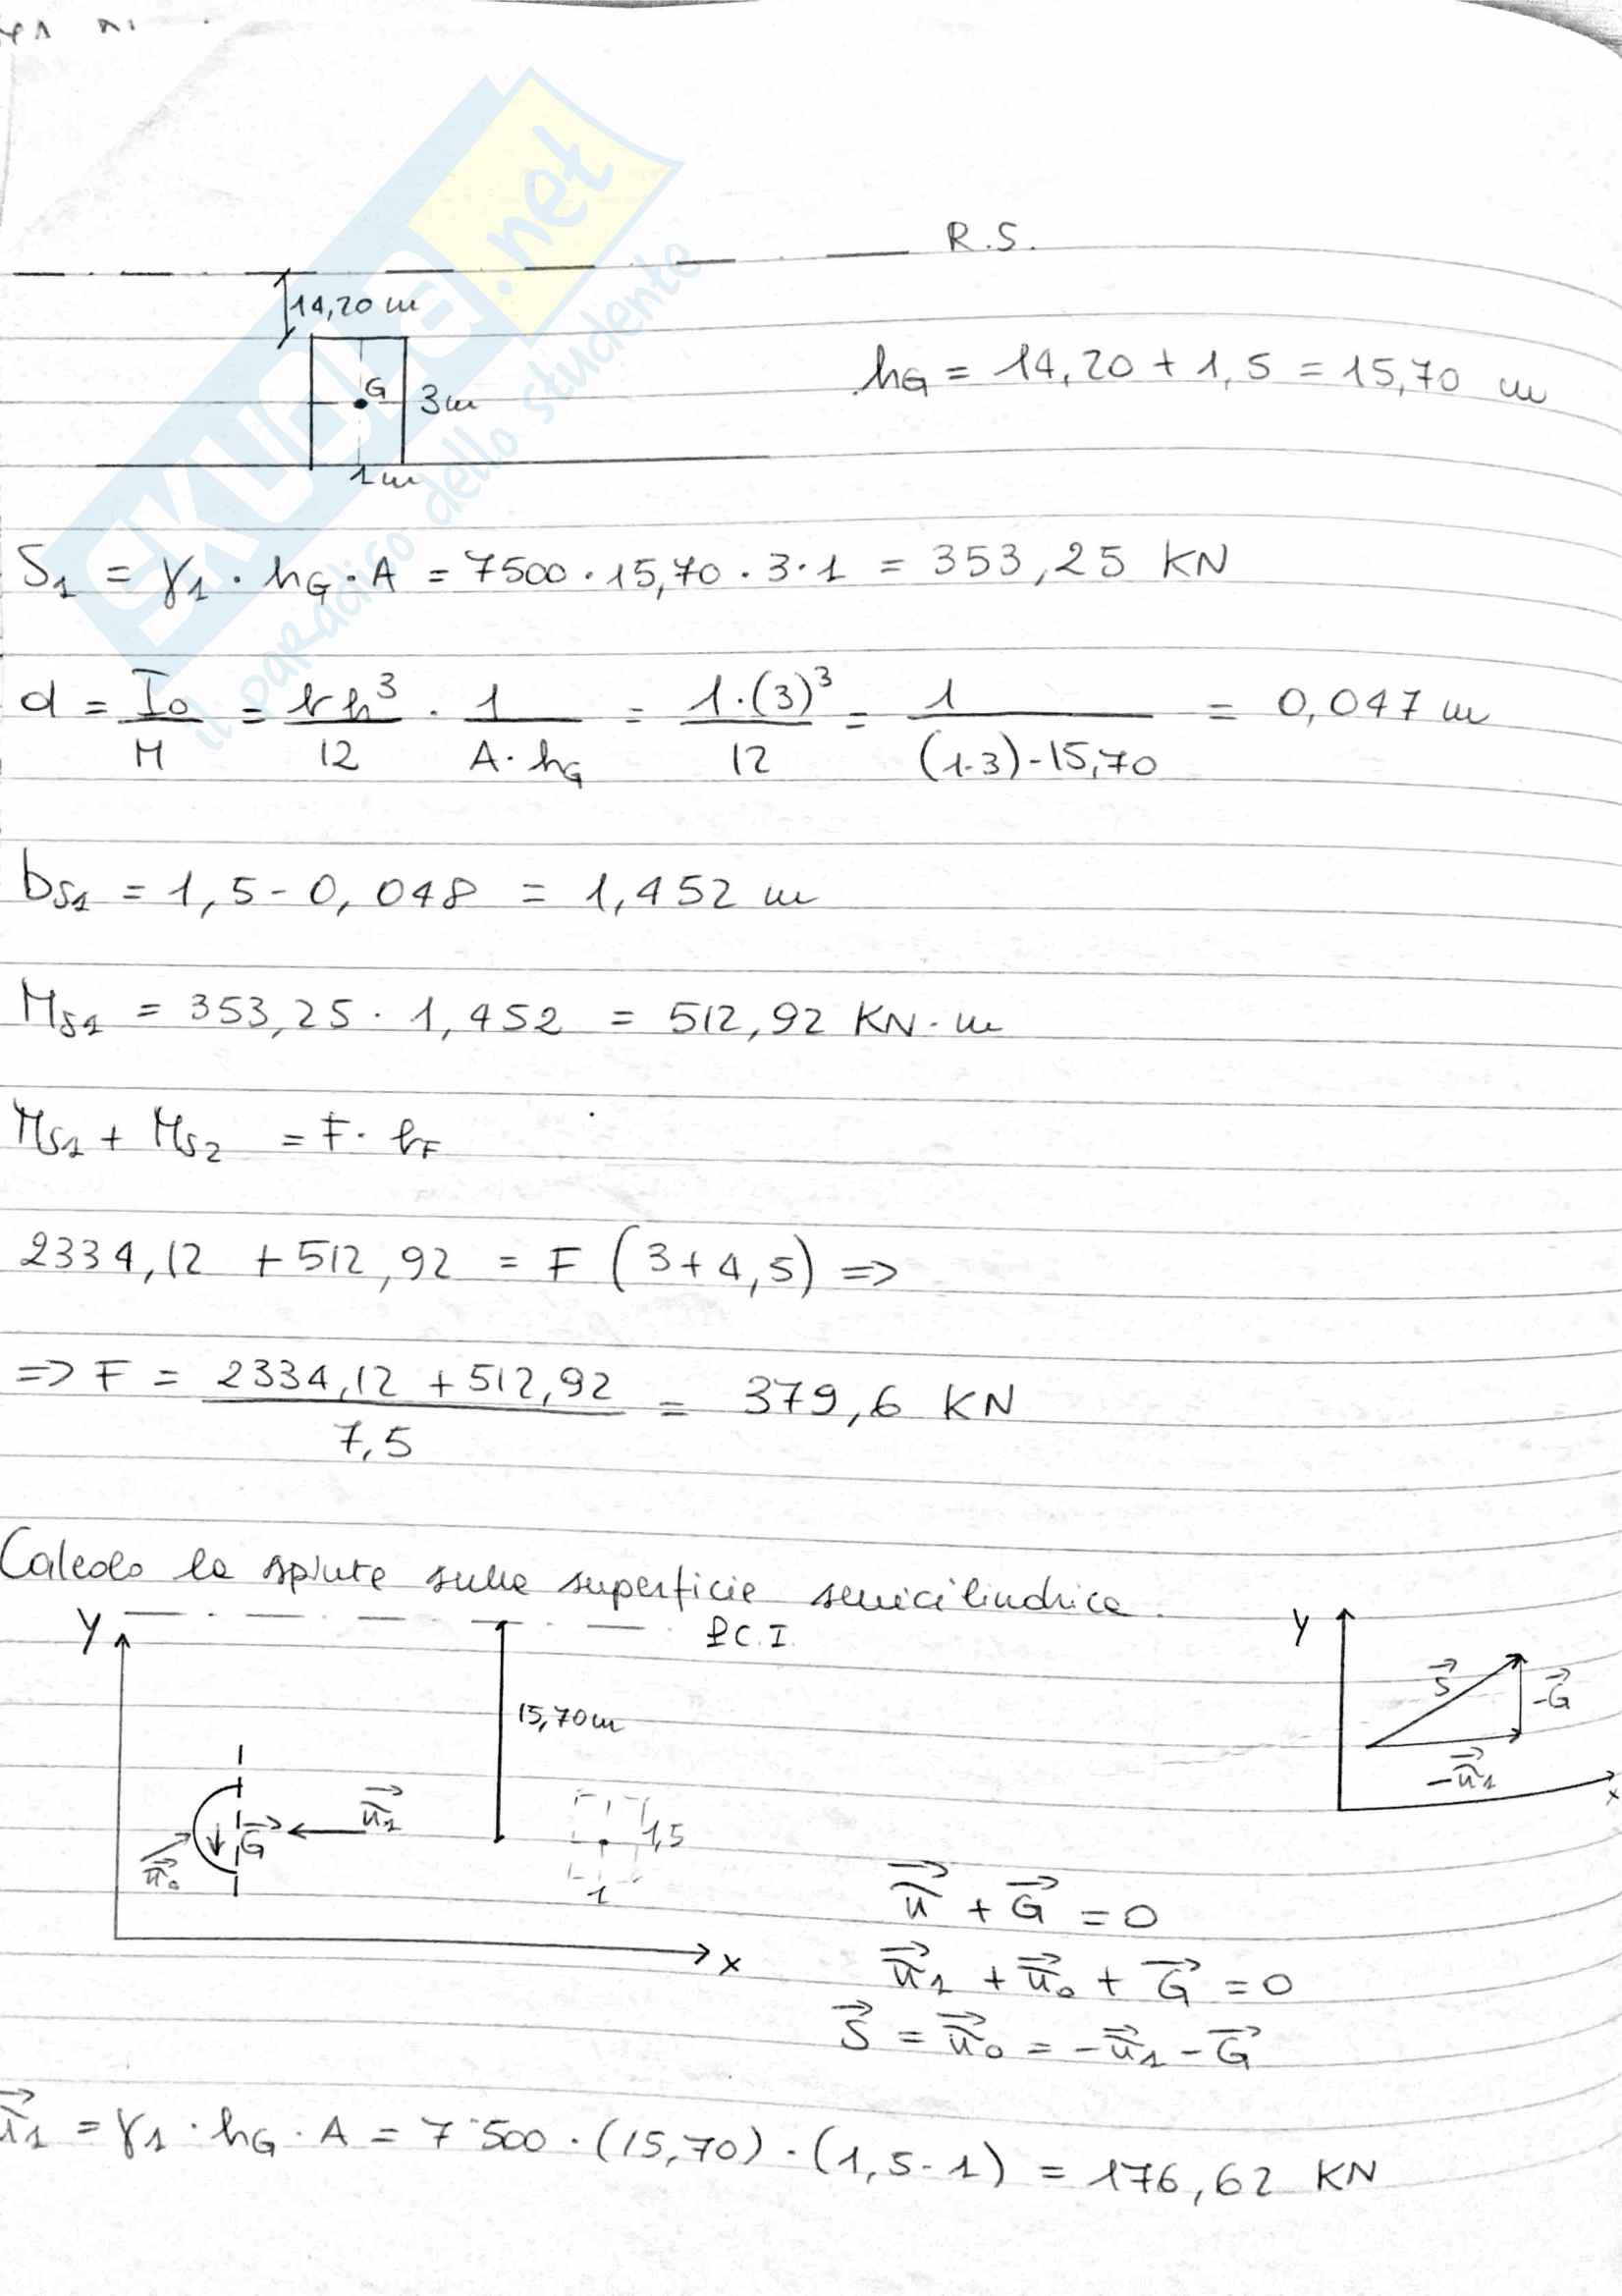 R.S.
14,20 m
G
3m
1m
hG = 14,20 + 1,5 = 15,70 m
SKUOLA.net
il paradiso dello studente
S1 = γ1 · hG · A = 7500 · 15,70 · 3 · 1 = 353,25 KN
d = I0/M = bh³/12 · 1/(A · hG) = 1·(3)³/12 = 1/((1·3)-15,70) = 0,047 m
bS1 = 1,5 - 0,048 = 1,452 m
MS1 = 353,25 · 1,452 = 512,92 KN · m
MS1 + MS2 = F · bF
2334,12 + 512,92 = F (3+4,5) =>
=> F = (2334,12 + 512,92)/7,5 = 379,6 KN
Calcolo la spinta sulla superficie semicilindrica.
y
P.C.I.
15,70m
G→
π→1
π→0
1,5
1
x
y
S→
-G→
-π→1
x
π→ + G→ = 0
π→1 + π→0 + G→ = 0
S→ = π→0 = -π→1 - G→
π→1 = γ1 · hG · A = 7500 · (15,70) · (1,5-1) = 176,62 KN